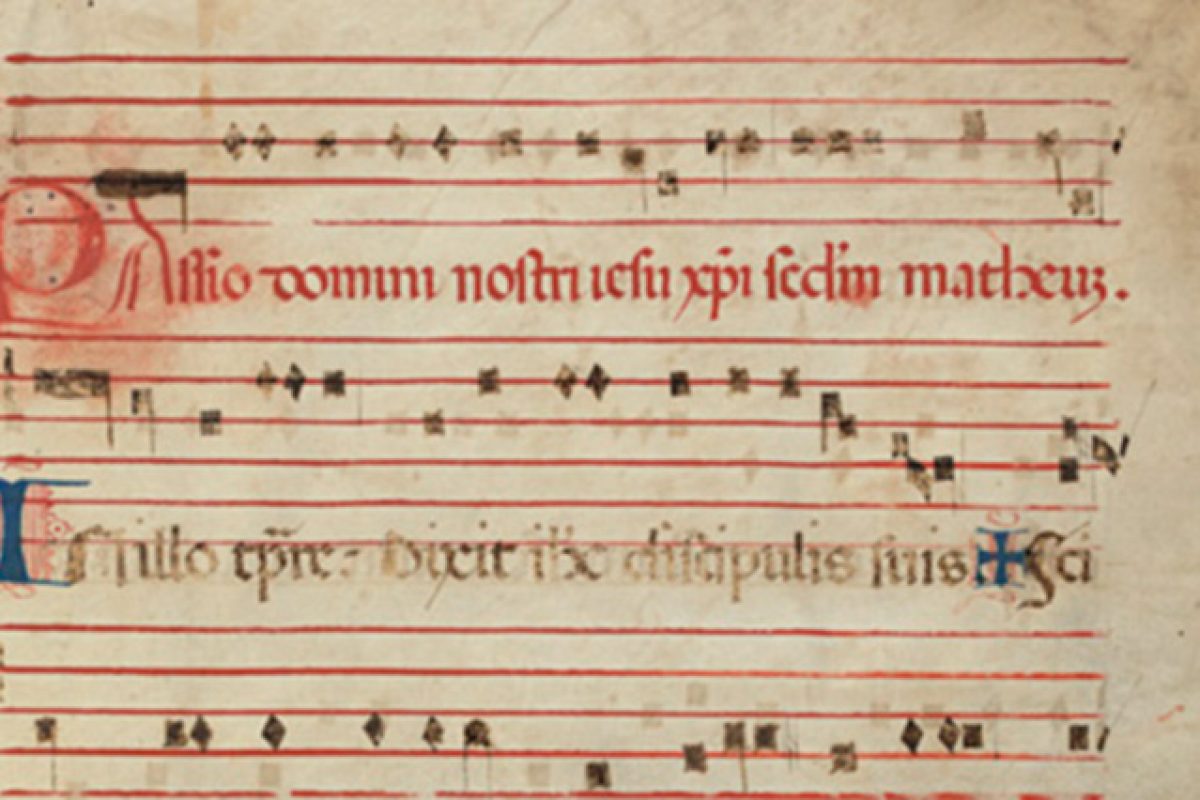 Passio domini nostri iesu xp̄i scd̄m matheuꝫ.
In illo tp̄re. Dixit ih̄c discipulis suis ✠ Sci